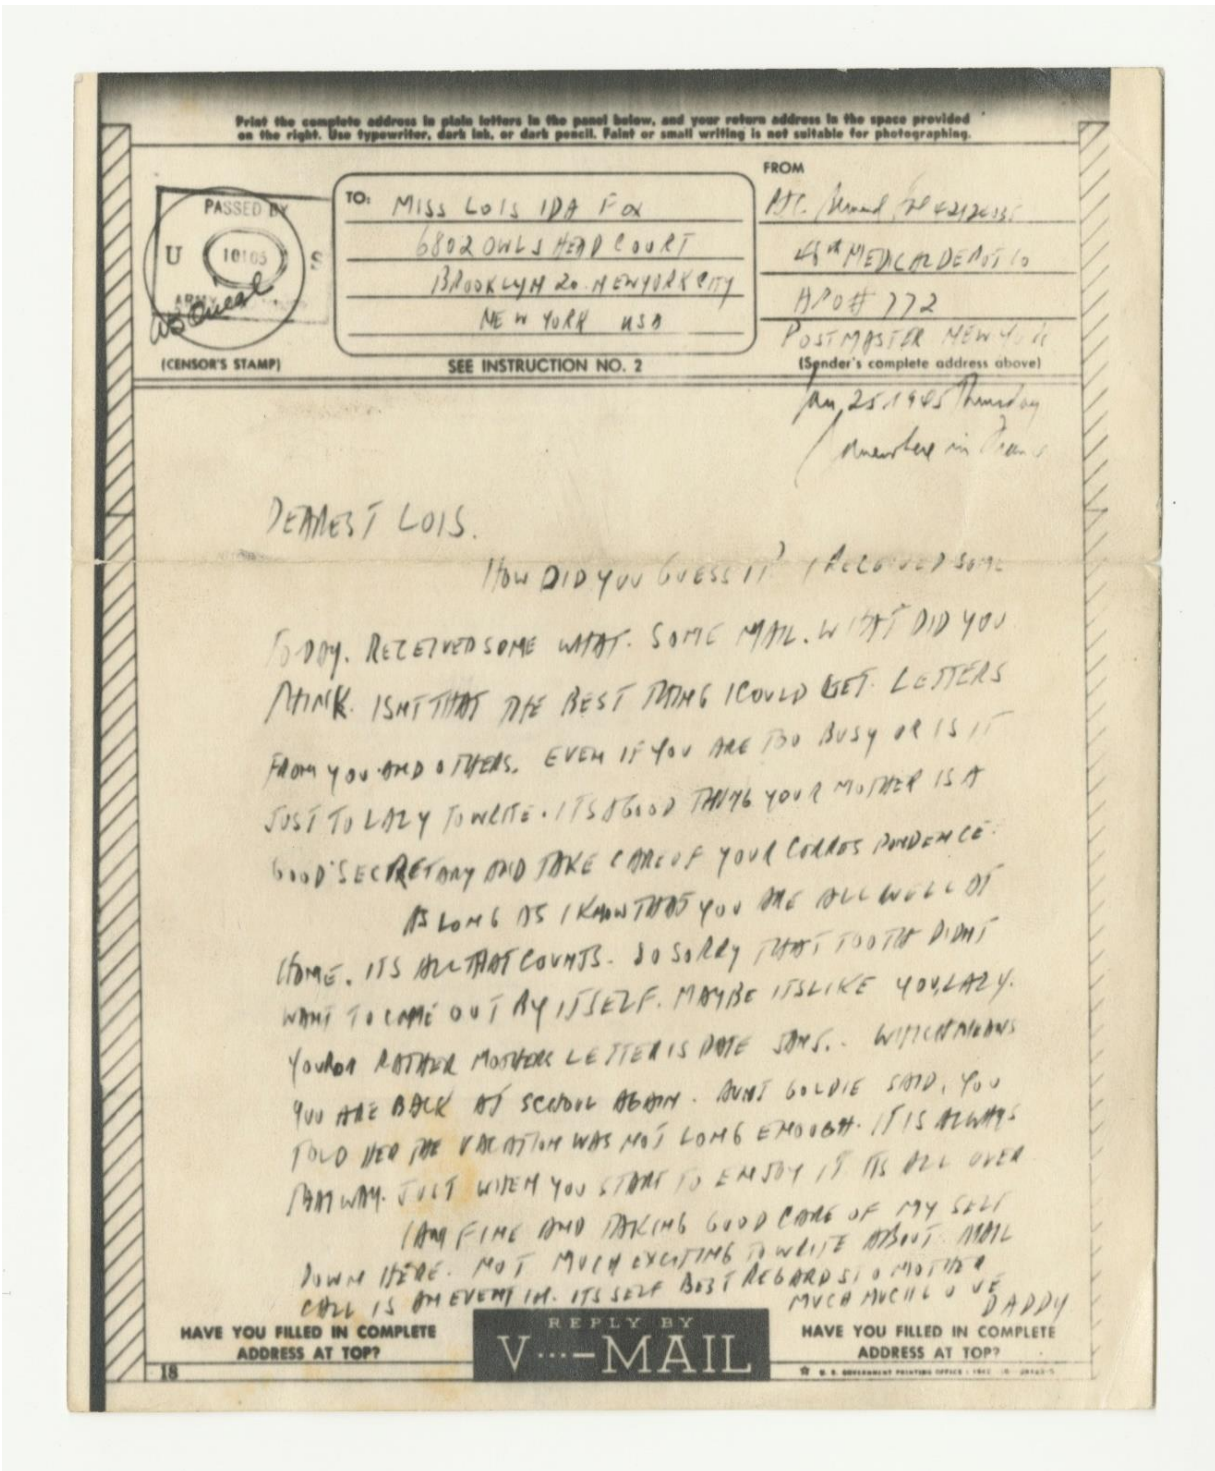 Print the complete address in plain letters in the panel below, and your return address in the space provided
on the right. Use typewriter, dark ink, or dark pencil. Faint or small writing is not suitable for photographing.
FROM
PASSED BY
U S
10103
ARMY
(CENSOR'S STAMP)
TO: MISS LOIS IDA FOX
6802 OWLS HEAD COURT
BROOKLYN 20. NEW YORK CITY
NEW YORK USA
SEE INSTRUCTION NO. 2
48th MEDICAL DEPOT CO
APO# 772
POSTMASTER NEW YORK
(Sender's complete address above)
Jan, 25, 1945 Thursday
Somewhere in France
DEAREST LOIS.
HOW DID YOU GUESS IT? I RECEIVED SOME
TODAY. RECEIVED SOME WHAT. SOME MAIL. WHAT DID YOU
THINK. ISNT THAT THE BEST THING I COULD GET. LETTERS
FROM YOU AND OTHERS. EVEN IF YOU ARE TOO BUSY OR IS IT
JUST TO LAZY TO WRITE. ITS A GOOD THING YOUR MOTHER IS A
GOOD SECRETARY AND TAKE CARE OF YOUR CORRESPONDENCE.
AS LONG AS I KNOW THAT YOU ARE ALL WELL AT
HOME. ITS ALL THAT COUNTS. SO SORRY THAT TOOTH DIDNT
WANT TO COME OUT BY ITSELF. MAYBE ITS LIKE YOU, LAZY.
RATHER MOTHERS LETTER IS DATE WHICH MEANS
YOU ARE BACK AT SCHOOL AGAIN. AUNT GOLDIE SAID, YOU
TOLD HER THE VACATION WAS NOT LONG ENOUGH. IT IS ALWAYS
THAT WAY. JUST WHEN YOU START TO ENJOY IT ITS ALL OVER
I AM FINE AND TAKING GOOD CARE OF MY SELF
DOWN HERE. NOT MUCH EXCITING TO WRITE ABOUT. MAIL
CALL IS AN EVENT IN ITS SELF BEST REGARDS TO MOTHER
MUCH MUCH LOVE
DADDY
HAVE YOU FILLED IN COMPLETE
ADDRESS AT TOP?
REPLY BY
V···—MAIL
HAVE YOU FILLED IN COMPLETE
ADDRESS AT TOP?
18